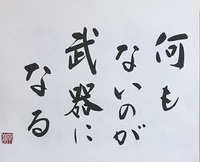 何も
ないのが
武器に
なる